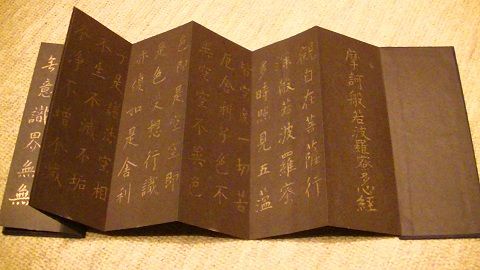 摩訶般若波羅蜜多心経
観自在菩薩行
深般若波羅蜜
多時照見五蘊
皆空度一切苦
厄舎利子色不
異空空不異色
色即是空空即
是色受想行識
亦復如是舎利
子是諸法空相
不生不滅不垢
不浄不増不減
無意識界無無